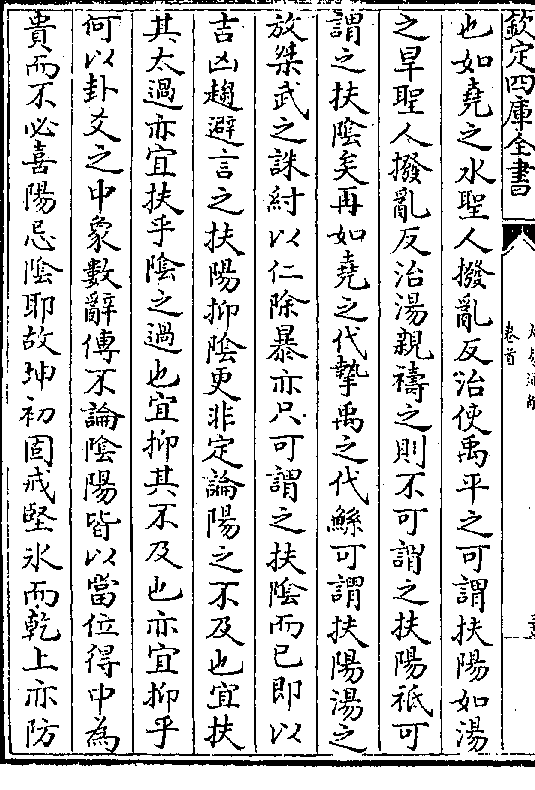 欽定四庫全書
卷首
也如堯之水聖人撥亂反治使禹平之可謂扶陽如湯
之旱聖人撥亂反治湯親禱之則不可謂之扶陽祗可
謂之扶陰矣再如堯之代摯禹之代鯀可謂扶陽湯之
放桀武之誅紂以仁除暴亦只可謂之扶陰而已即以
吉凶趨避言之扶陽抑陰更非定論陽之不及也宜扶
其太過亦宜扶乎陰之過也宜抑其不及也亦宜抑乎
何以卦爻之中象數辭傳不論陰陽皆以當位得中為
貴而不必喜陽忌陰耶故坤初固戒堅氷而乾上亦防